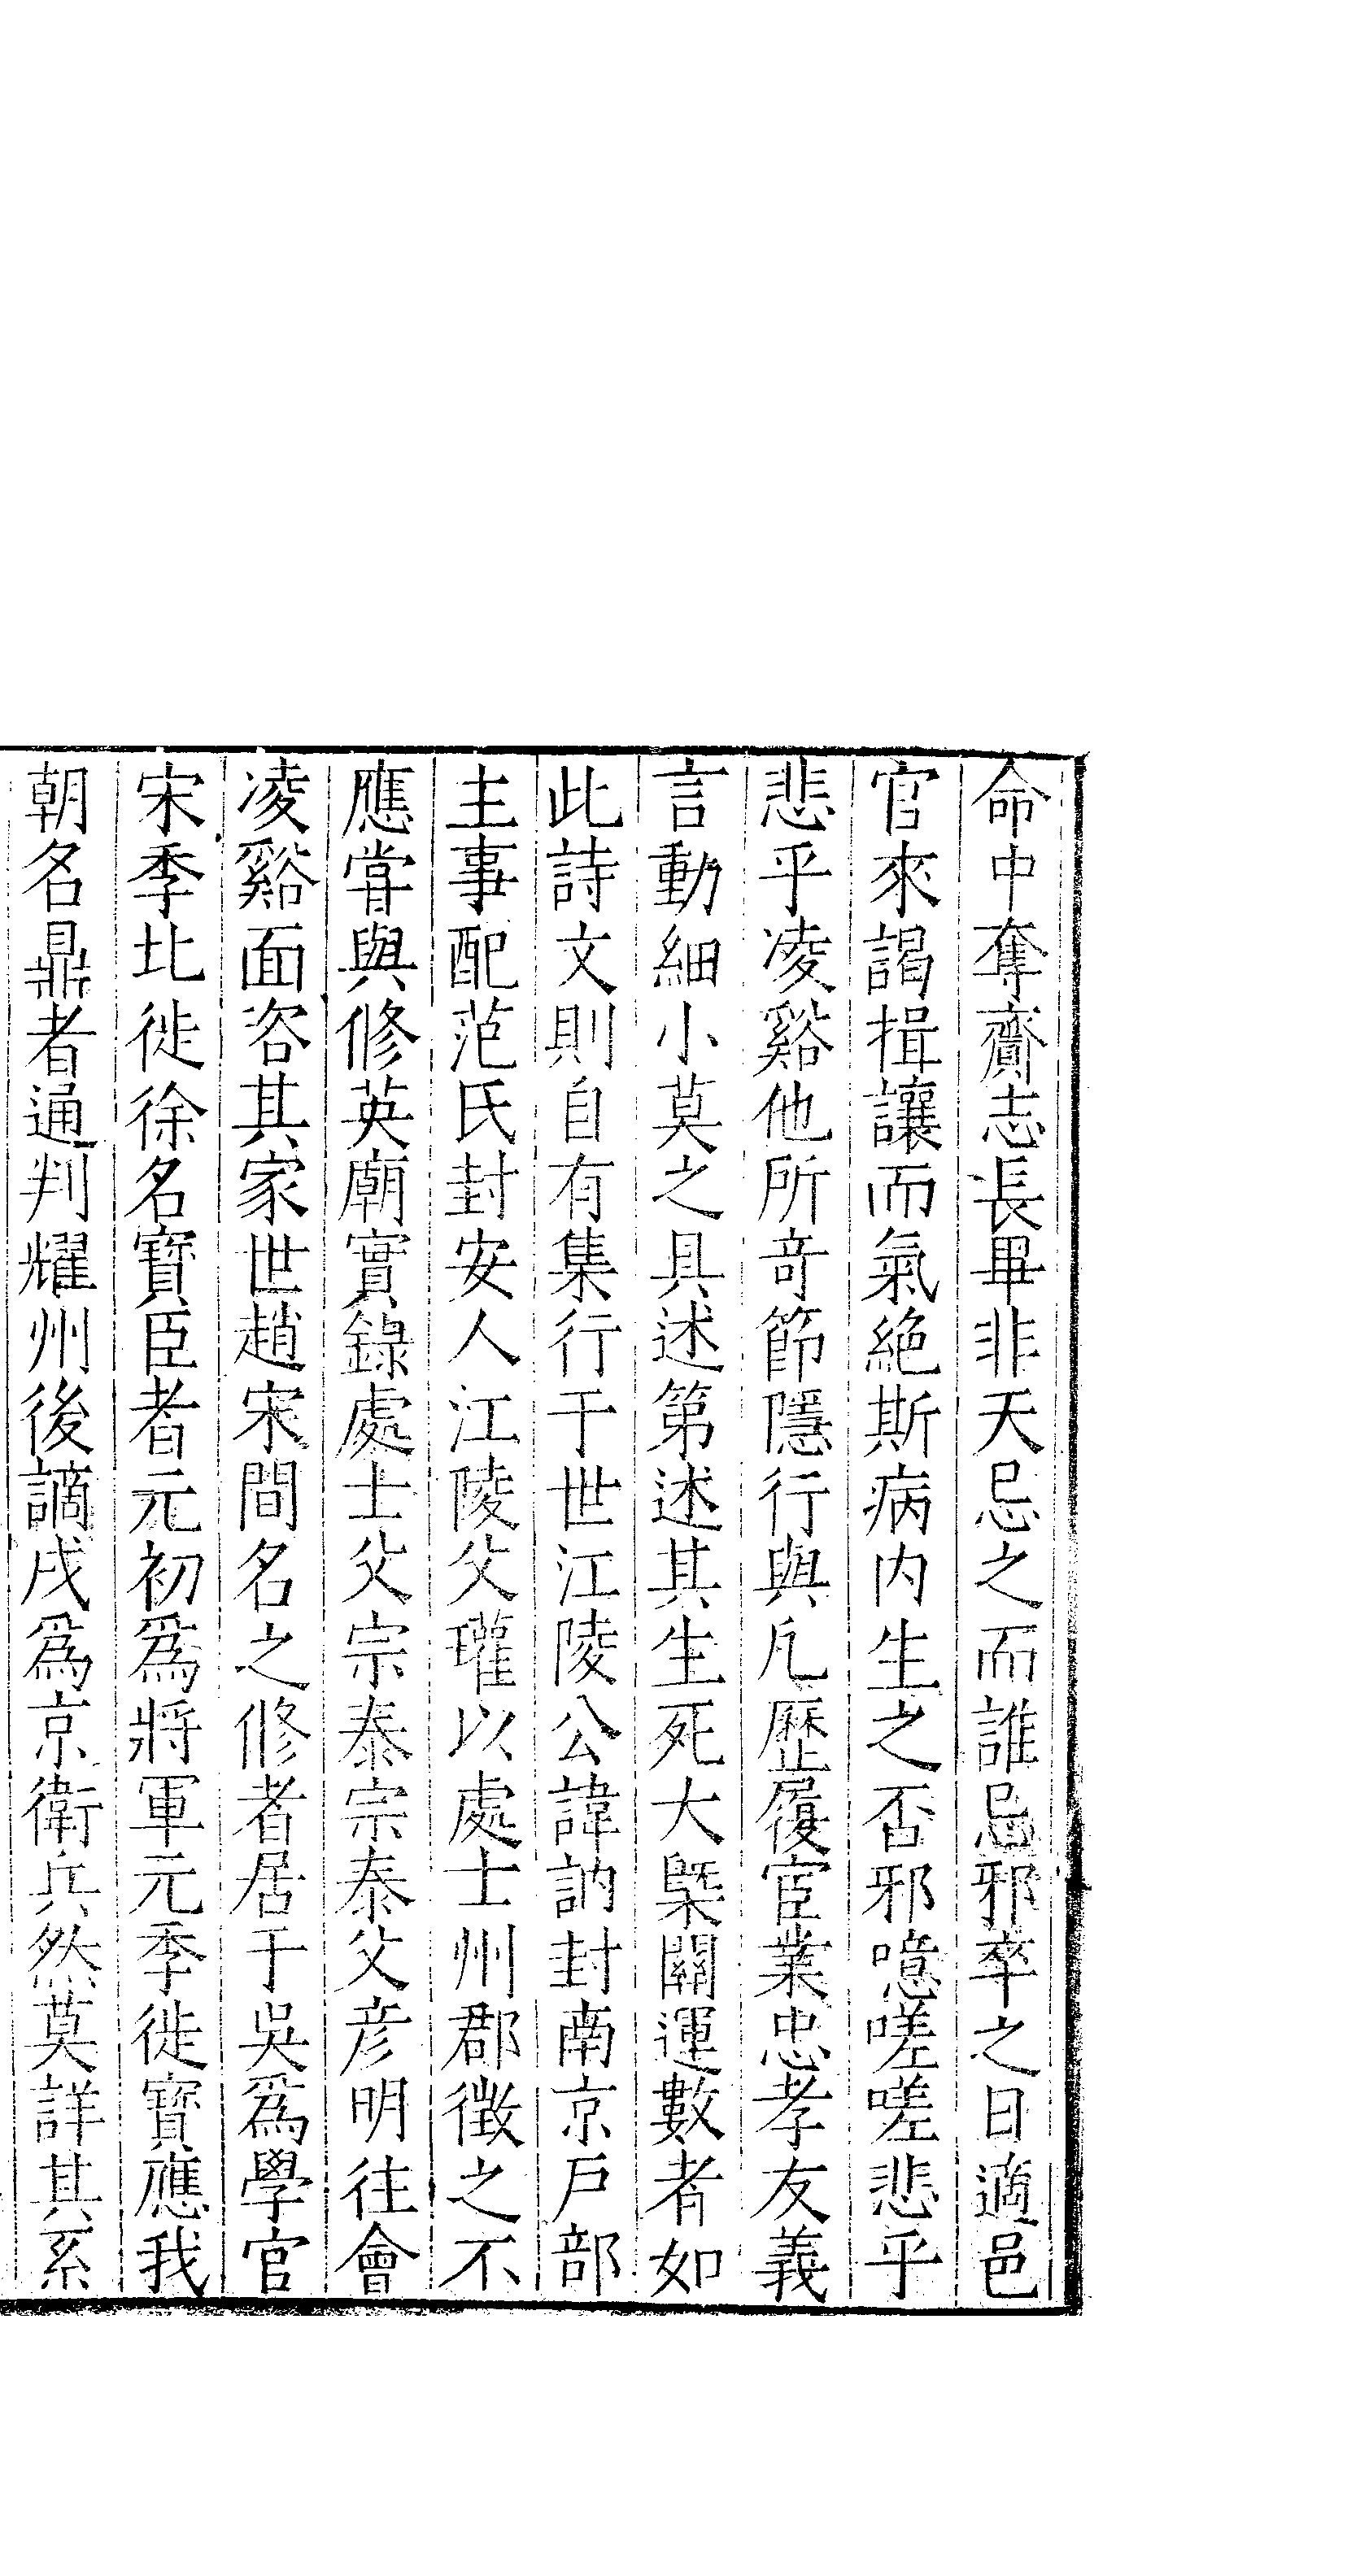 命中奪齎志長畢非天忌之而誰忌邪卒之日適邑
官來謁揖讓而氣絶斯病内生之否邪噫嗟嗟悲乎
悲乎凌谿他所奇節隱行與凡歷履宦業忠孝友義
言動細小莫之具述第述其生死大槩關運數者如
此詩文則自有集行于世江陵公諱訥封南京戶部
主事配范氏封安人江陵父瓘以處士州郡徵之不
應嘗與修英廟實錄處士父宗泰宗泰父彦明往會
凌谿面咨其家世趙宋間名之修者居于吳爲學官
宋季北徙徐名寶臣者元初爲將軍元季徙寶應我
朝名鼎者通判耀州後謫戍爲京衛兵然莫詳其系